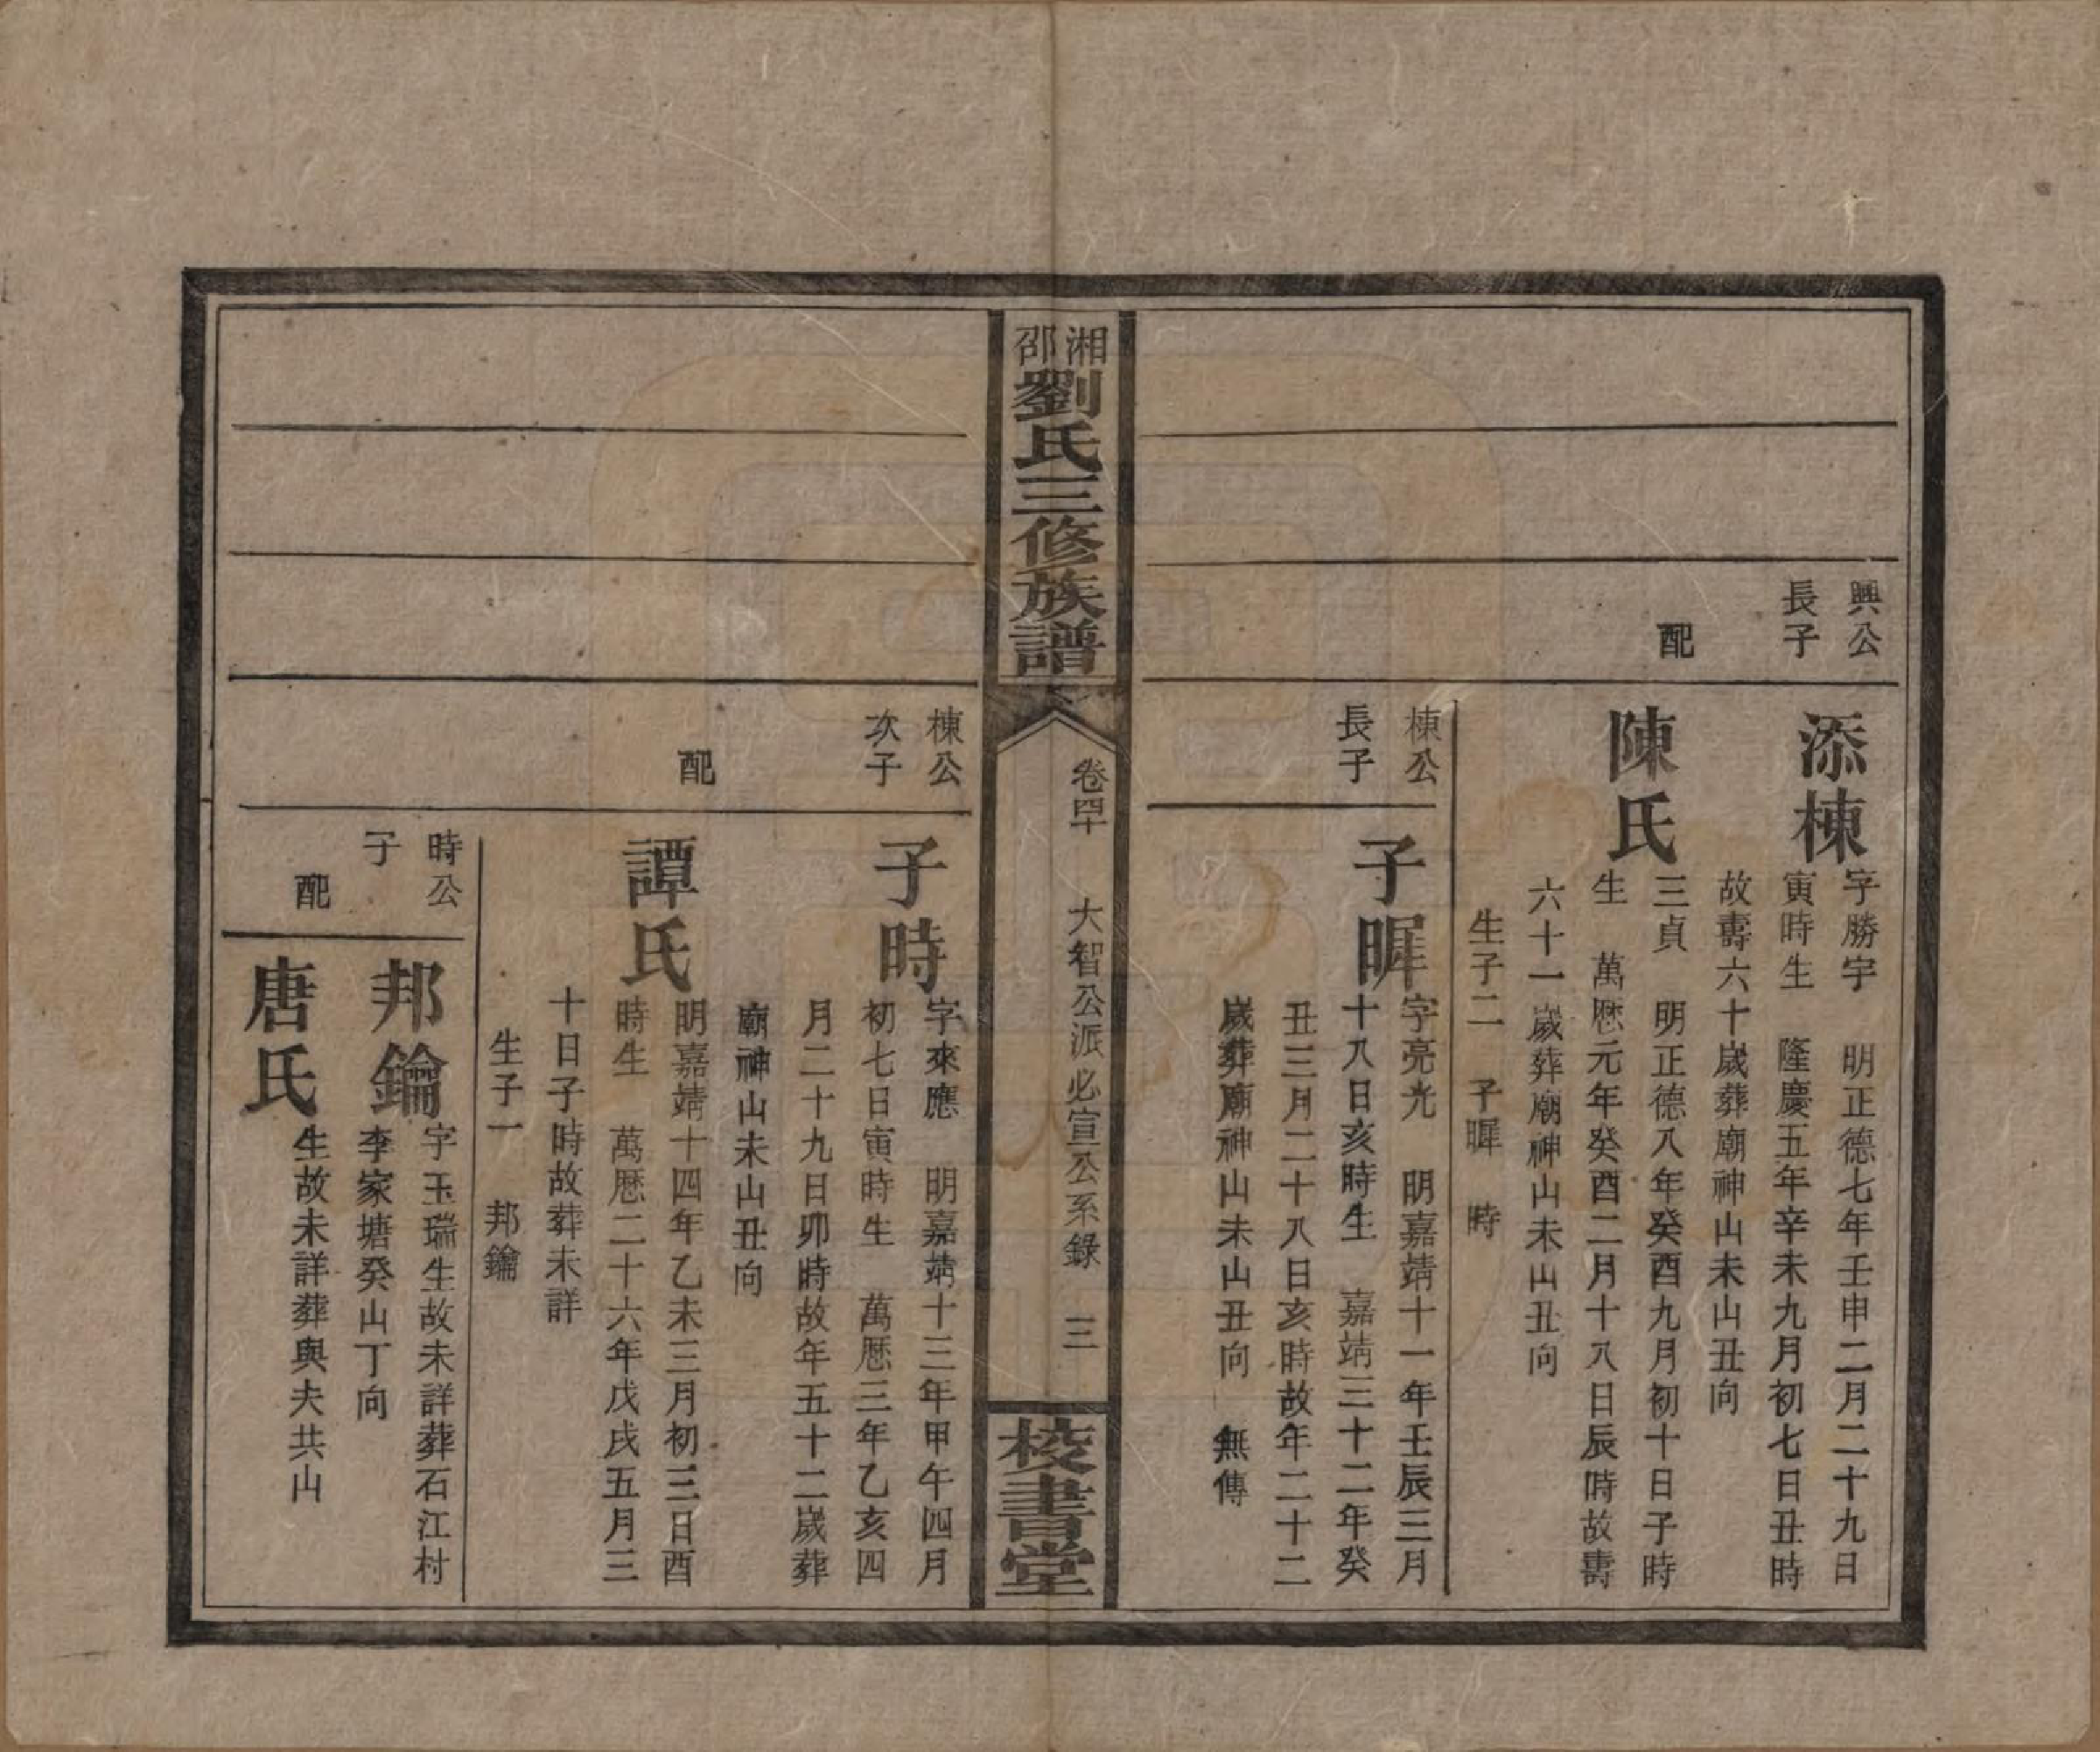 興公
長子
添棟
字勝宇 明正德七年壬申二月二十九日
寅時生 隆慶五年辛未九月初七日丑時
故壽六十歲葬廟神山未山丑向
配
陳氏
三貞 明正德八年癸酉九月初十日子時
生 萬厯元年癸酉二月十八日辰時故壽
六十一歲葬廟神山未山丑向
生子二 子暉 時
棟公
長子
子暉
字亮光 明嘉靖十一年壬辰三月
十八日亥時生 嘉靖三十二年癸
丑三月二十八日亥時故年二十二
歲葬廟神山未山丑向 無傳
湘邵劉氏三修族譜
卷四十
大智公派必宣公系錄 三
校書堂
棟公
次子
子時
字來應 明嘉靖十三年甲午四月
初七日寅時生 萬厯三年乙亥四
月二十九日卯時故年五十二歲葬
廟神山未山丑向
配
譚氏
明嘉靖十四年乙未三月初三日酉
時生 萬厯二十六年戊戌五月三
十日子時故葬未詳
生子一 邦鑰
時公
子
邦鑰
字玉瑞生故未詳葬石江村
李家塘癸山丁向
配
唐氏
生故未詳葬與夫共山